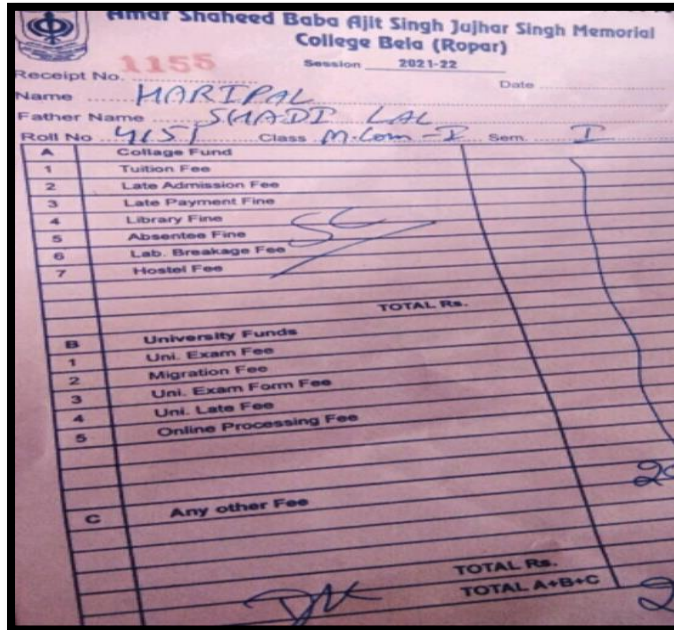 Amar Shaheed Baba Ajit Singh Jujhar Singh Memorial
College Bela (Ropar)
Session 2021-22
Receipt No. 1155 Date
Name HARIPAL
Father Name SHADI LAL
Roll No 4151 Class M.Com-I Sem. I
A Collage Fund
1 Tuition Fee
2 Late Admission Fee
3 Late Payment Fine
4 Library Fine
5 Absentee Fine
6 Lab. Breakage Fee
7 Hostel Fee
SC
TOTAL Rs.
B University Funds
1 Uni. Exam Fee
2 Migration Fee
3 Uni. Exam Form Fee
4 Uni. Late Fee
5 Online Processing Fee
C Any other Fee
TOTAL Rs.
TOTAL A+B+C